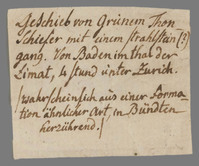 Geschieb von Grünem Thon
Schiefer mit einem strahlstein (?)
gang. Von Baden im thal der
Limat, 4 stund unter Zurich.
(wahrscheinlich aus einer Forma-
tion ähnlicher Art, in Bündten
herrührend.)